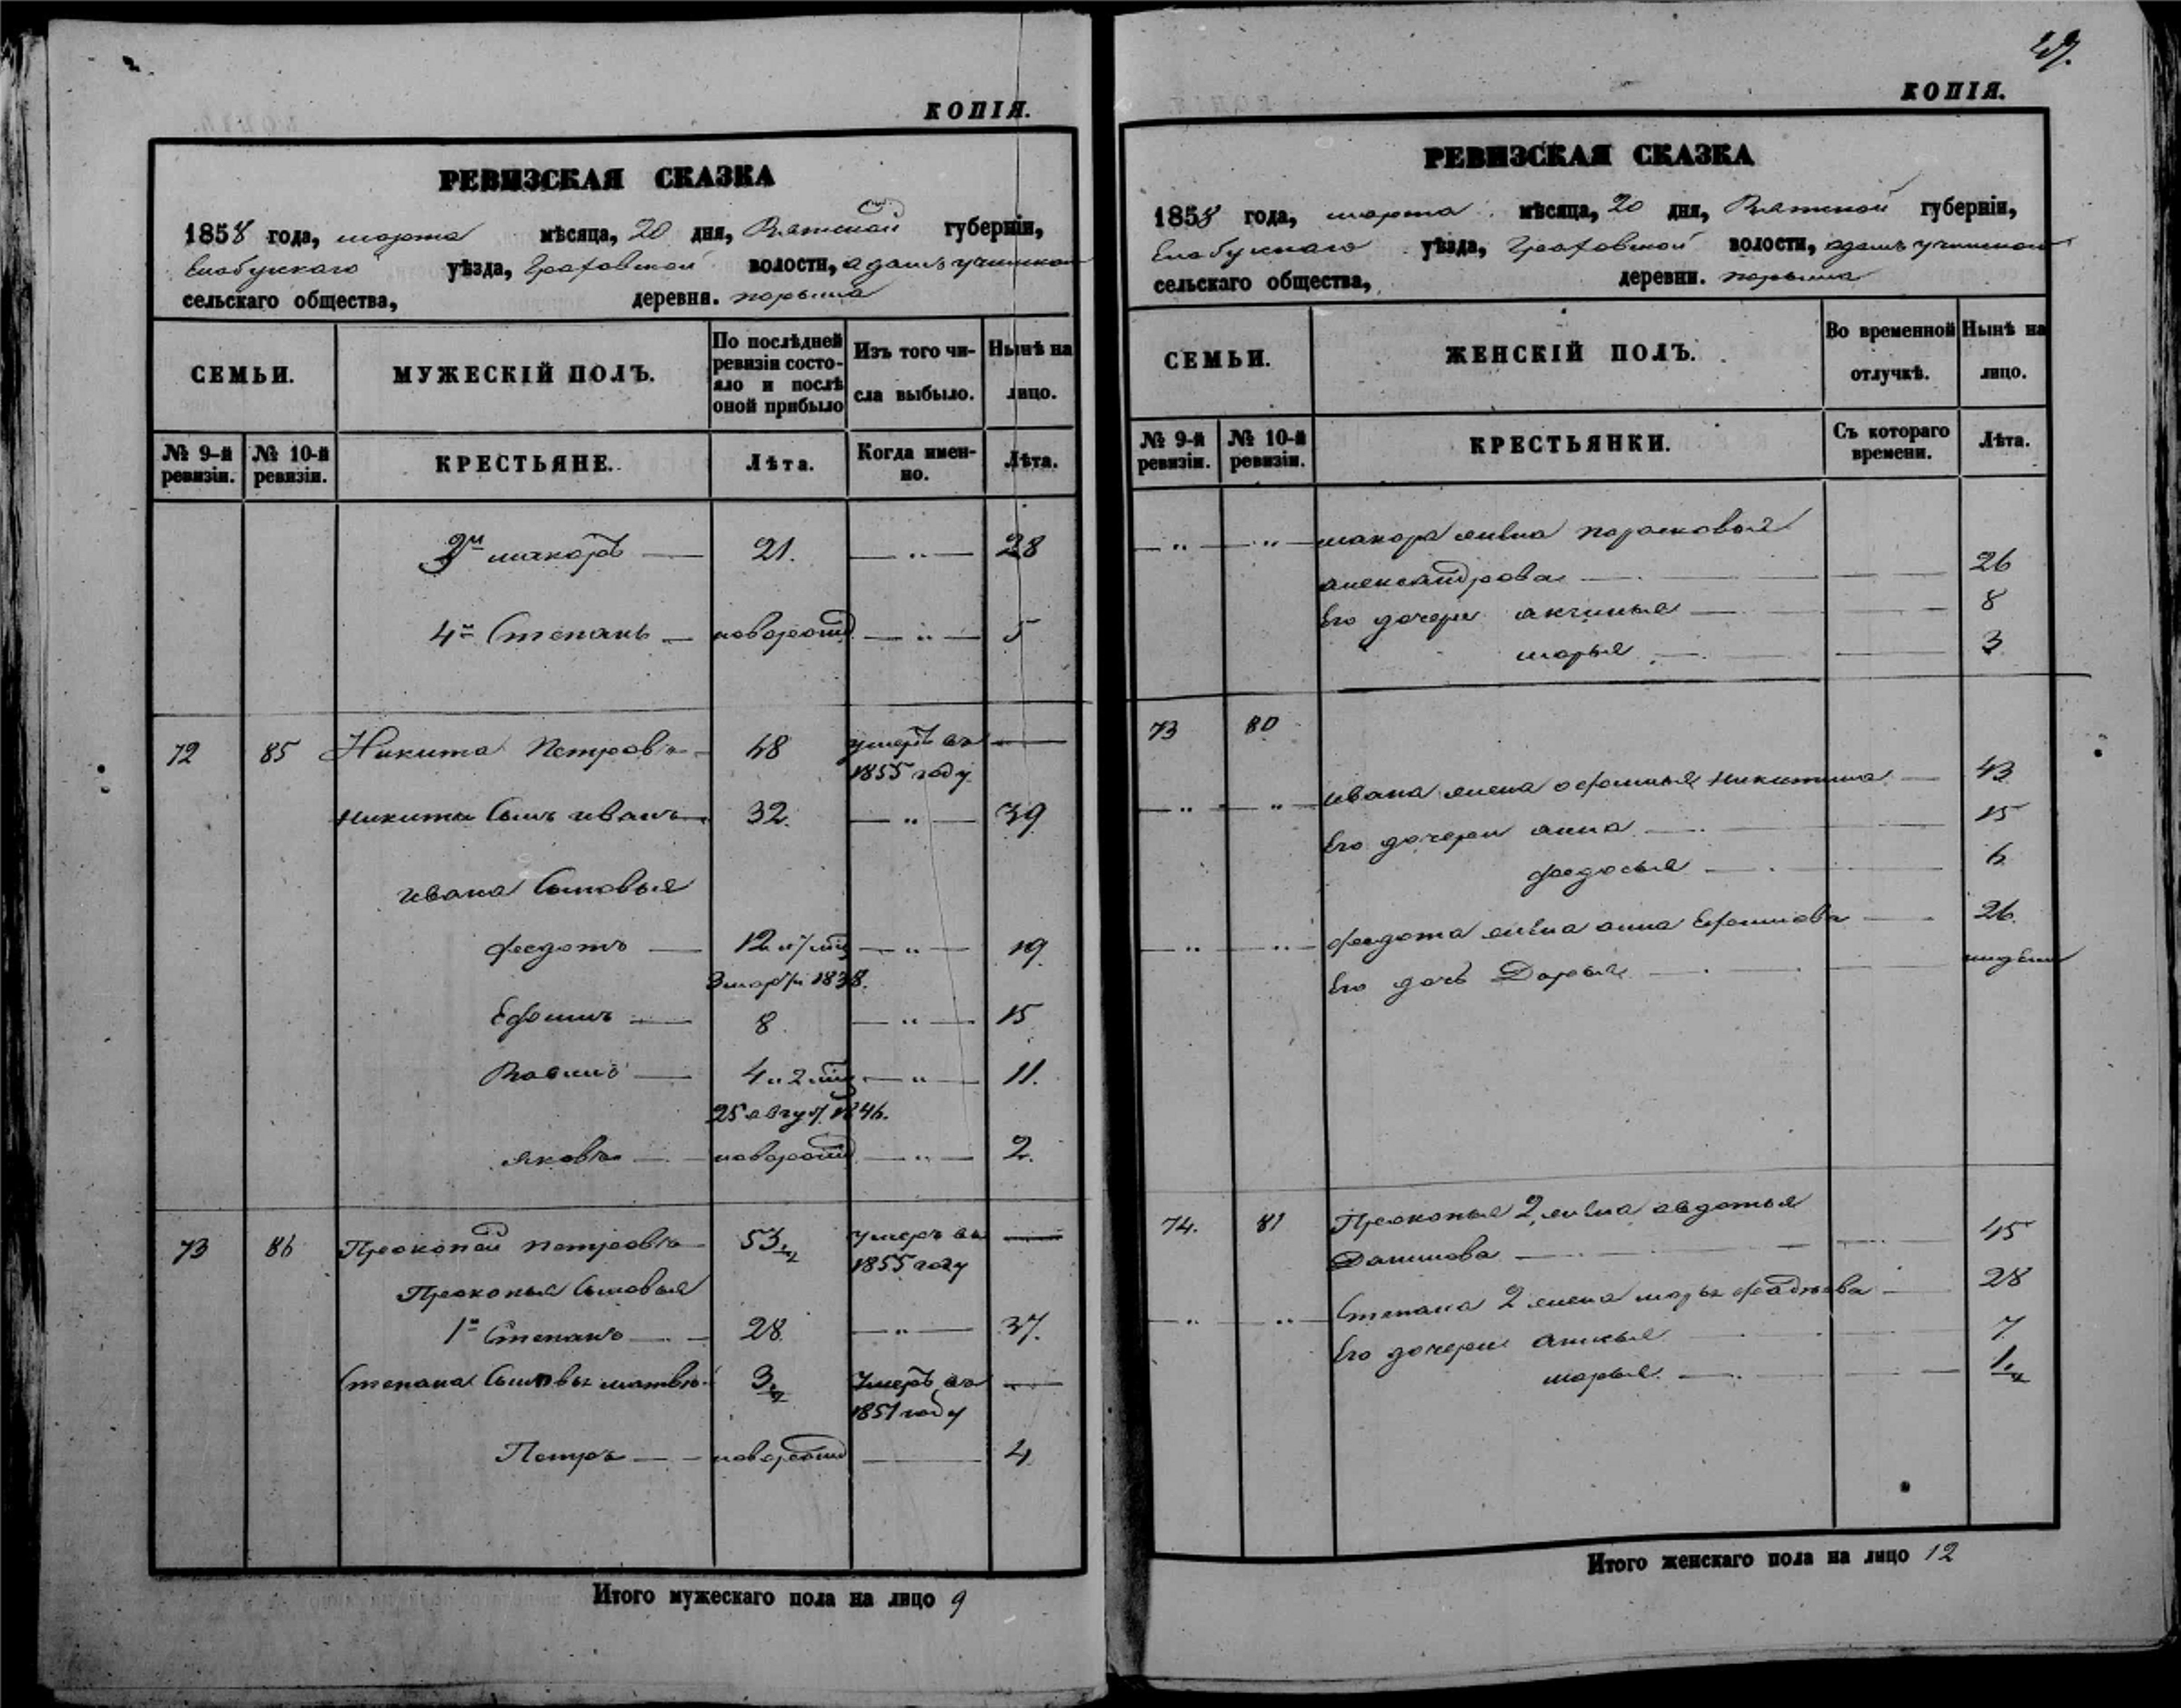 КОПІЯ.
РЕВИЗСКАЯ СКАЗКА
1858 года, марта мѣсяца, 20 дня, Вятской губерніи,
Елабускаго уѣзда, Граховской волости,
сельскаго общества, деревни.
СЕМЬИ.
МУЖЕСКІЙ ПОЛЪ.
По послѣдней ревизіи состояло и послѣ оной прибыло
Изъ того числа выбыло.
Нынѣ на лицо.
№ 9-й ревизіи.
№ 10-й ревизіи.
КРЕСТЬЯНЕ.
Лѣта.
Когда именно.
Лѣта.
2й макаръ — 21. — „ — 28
4й Степанъ — новорожд — „ — 5
72 85 Никита Петровъ 48 умеръ въ 1855 году —
Никиты Сынъ иванъ — 32. — „ — 39
ивана Сыновья
федотъ — 12 и 7 мѣс — „ — 19
1838.
Ефимъ — 8 — „ — 15
4 и 2 мѣс — „ — 11.
25 август. 1846.
яковъ — новорожд — „ — 2.
73 86 Прокопей петровъ 53½ умеръ въ 1855 году —
Прокопья Сыновья
1й Степанъ — 28 — „ — 37.
Степана Сыновья матвѣй 3½ Умеръ въ 1851 году —
Петръ — новорожд — 4
Итого мужескаго пола на лицо 9
КОПІЯ.
РЕВИЗСКАЯ СКАЗКА
1858 года, марта мѣсяца, 20 дня, Вятской губерніи,
Елабускаго уѣзда, Граховской волости,
сельскаго общества, деревни.
СЕМЬИ.
ЖЕНСКІЙ ПОЛЪ.
Во временной отлучкѣ.
Нынѣ на лицо.
№ 9-й ревизіи.
№ 10-й ревизіи.
КРЕСТЬЯНКИ.
Съ котораго времени.
Лѣта.
— „ — „ — макара жена парасковья
александрова — 26
Его дочери акчинья — 8
марья — 3
73 80
— „ — „ — ивана жена офимья никитина — 43
Его дочери анна — 15
федосья — 6
— „ — „ — федота жена анна Ефимова — 26.
Его дочь Дарья —
74. 81 Прокопья 2 жена авдотья
Данилова — 45
— „ — „ — Степана 2 жена марья — 28
Его дочери — 7
марья — 1½
Итого женскаго пола на лицо 12